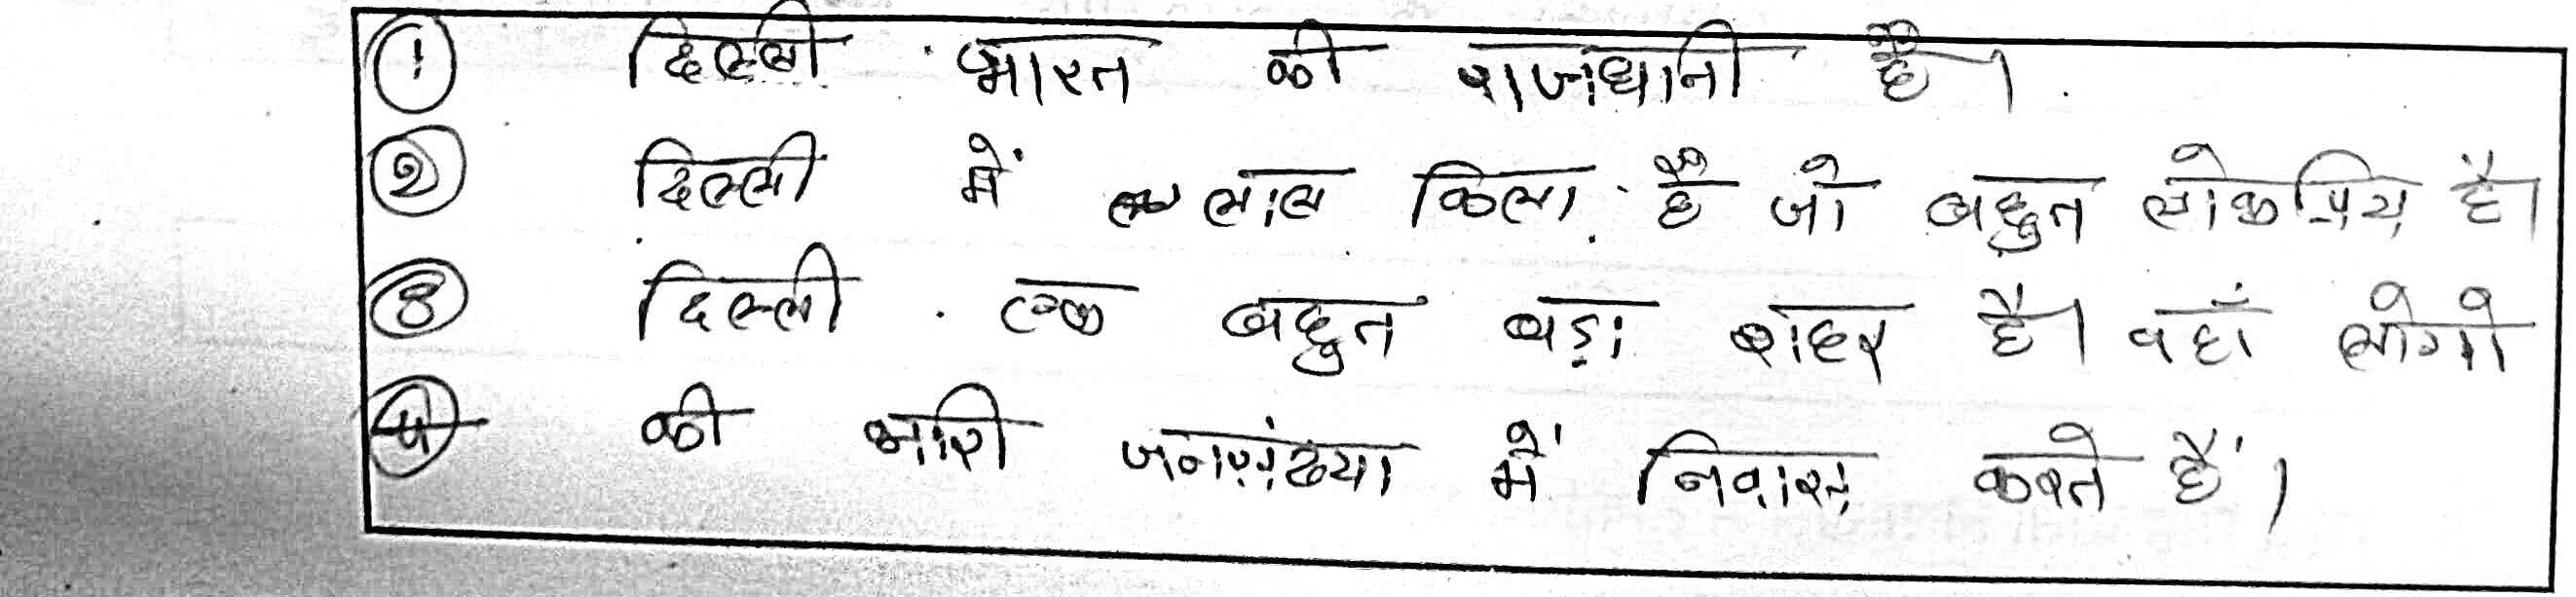 ① दिल्ली भारत की राजधानी है।
② दिल्ली में लाल किला है जो बहुत लोकप्रिय है।
③ दिल्ली एक बहुत बड़ा शहर है। वहाँ लोगो
④ की भारी जनसंख्या में निवास करते हैं।